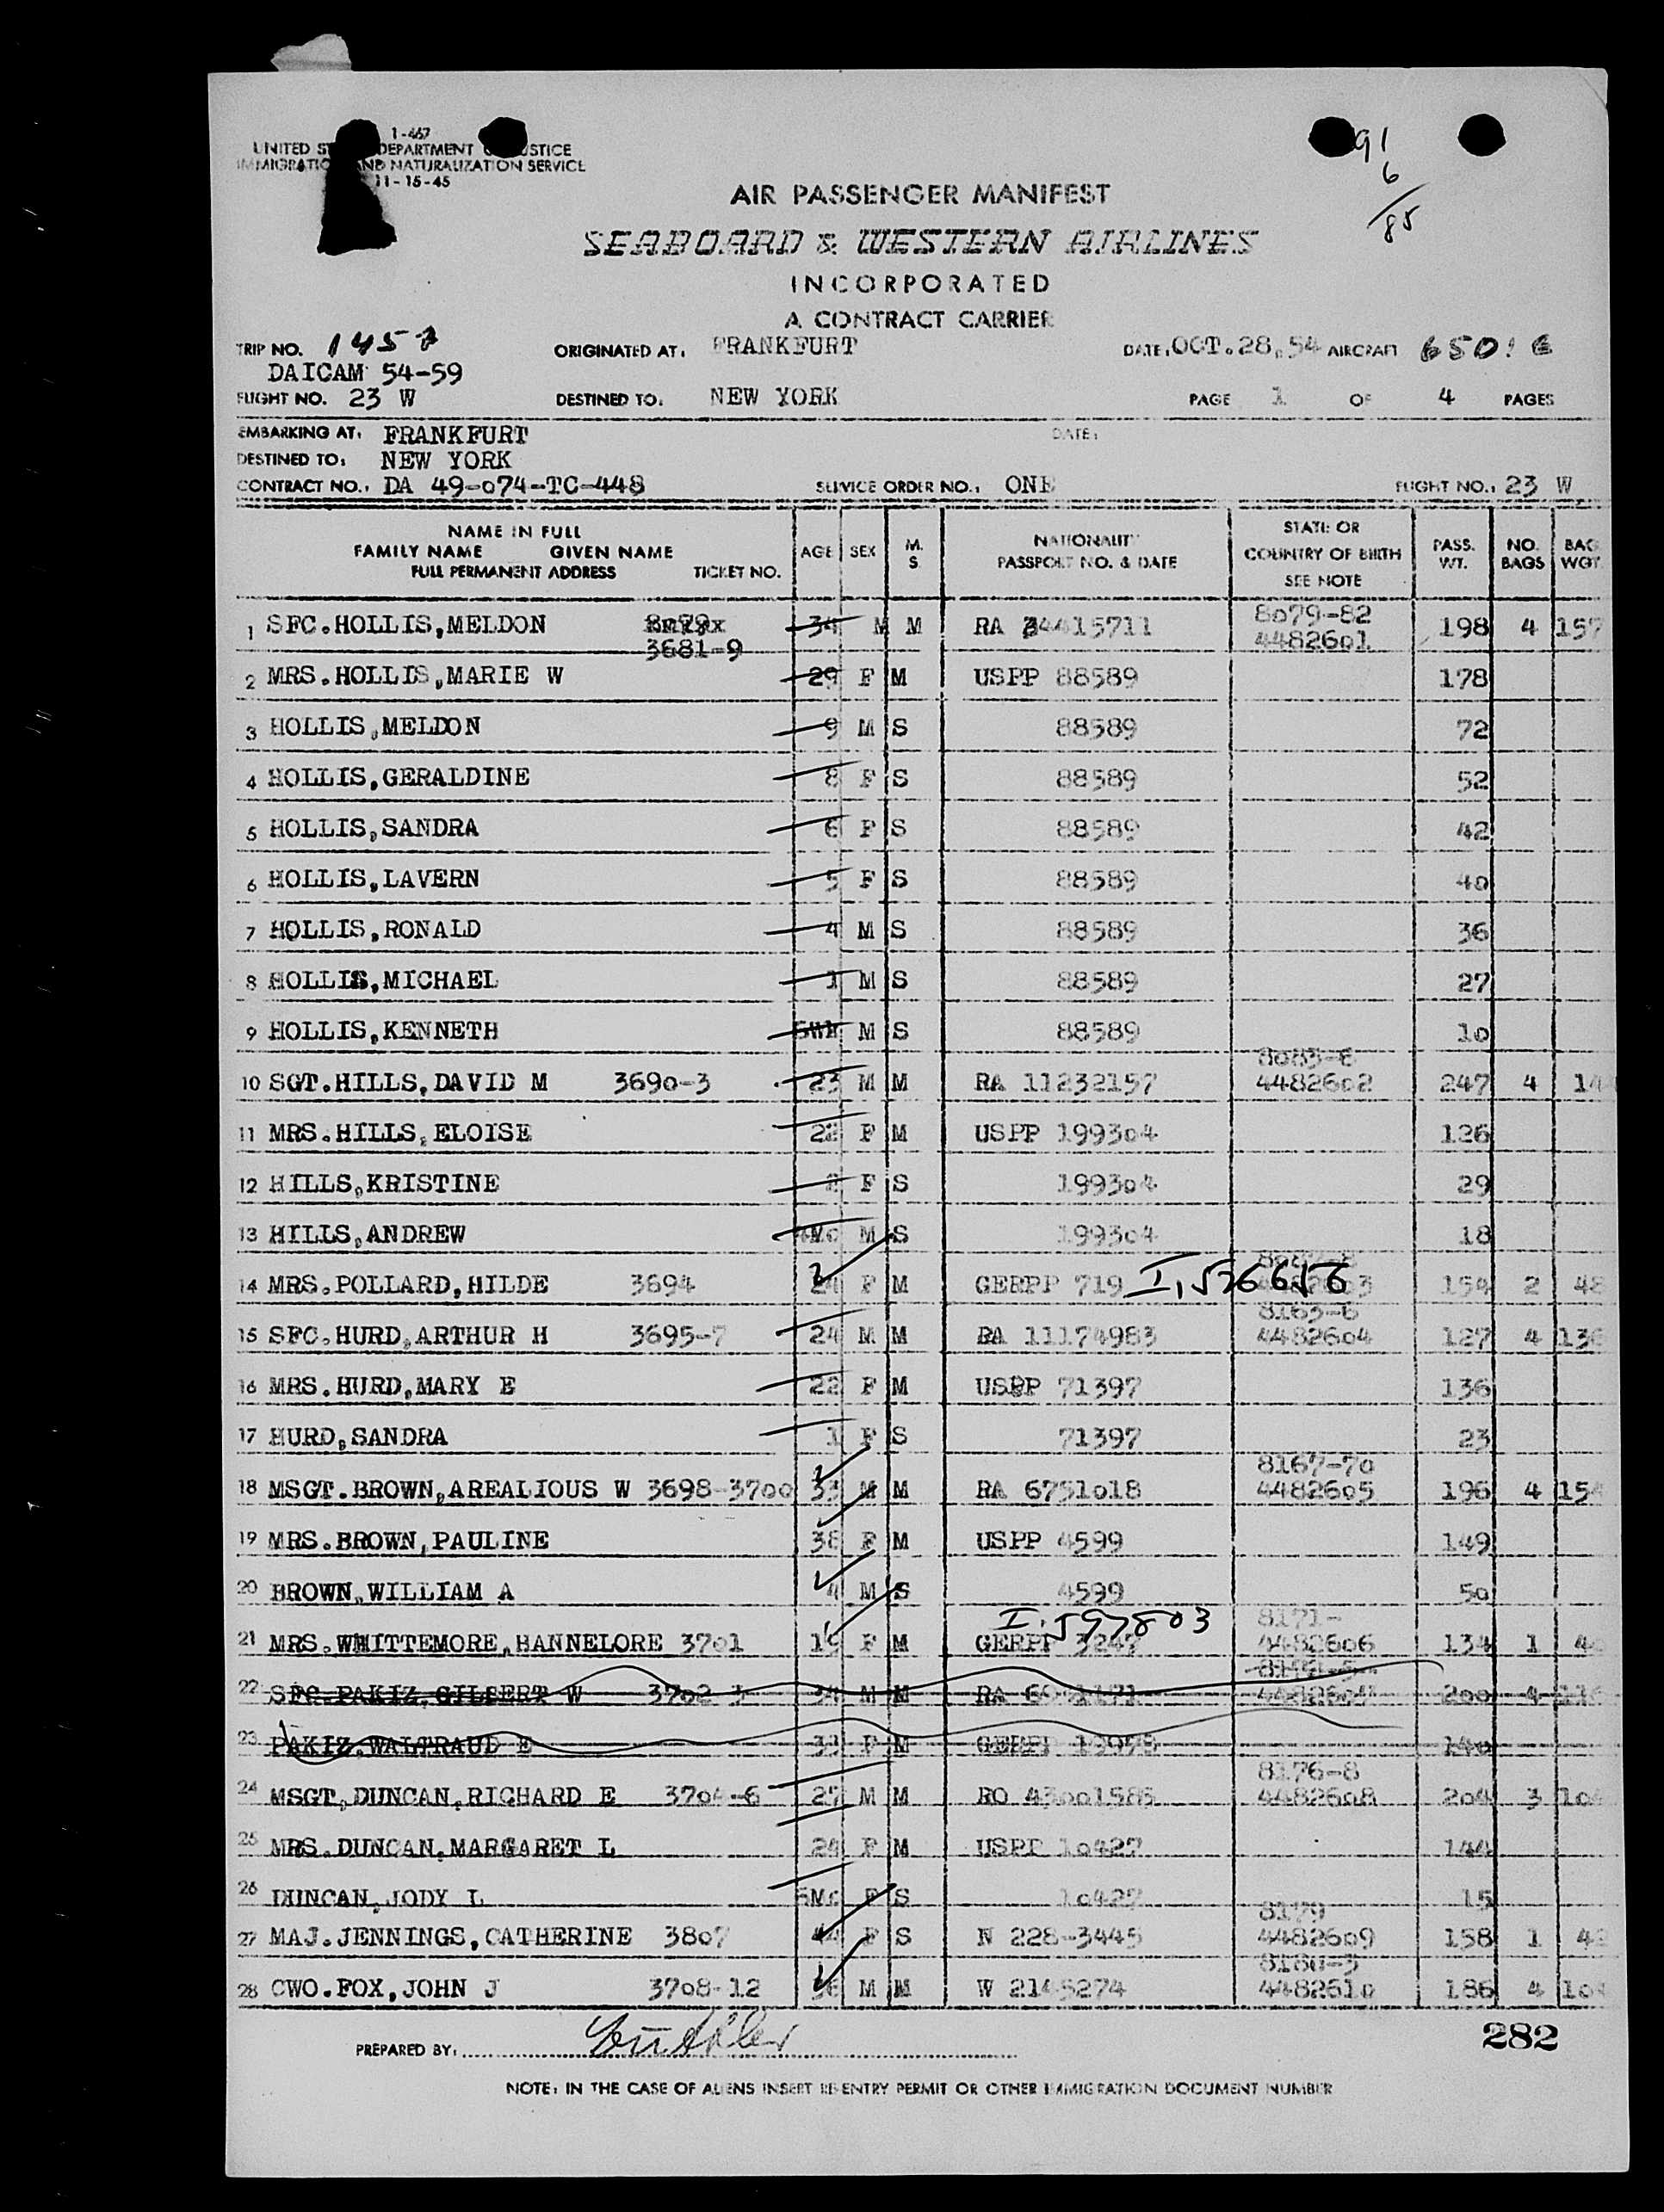 1-467
UNITED ST DEPARTMENT USTICE
IMMIGRATIO AND NATURALIZATION SERVICE
11-15-45
91
6
/85
AIR PASSENGER MANIFEST
SEABOARD & WESTERN AIRLINES
INCORPORATED
A CONTRACT CARRIER
TRIP NO. ORIGINATED AT: FRANKFURT DATE: OCT.28,54 AIRCRAFT
DAICAM 54-59
FLIGHT NO. 23 W DESTINED TO: NEW YORK PAGE 1 OF 4 PAGES
EMBARKING AT: FRANKFURT DATE:
DESTINED TO: NEW YORK
CONTRACT NO.: DA 49-074-TC-448 SERVICE ORDER NO.: ONE FLIGHT NO.: 23 W
NAME IN FULL
FAMILY NAME GIVEN NAME
FULL PERMANENT ADDRESS TICKET NO. AGE SEX M. S. NATIONALITY PASSPORT NO. & DATE STATE OR COUNTRY OF BIRTH SEE NOTE PASS. WT. NO. BAGS BAG WGT.
8079-82
1 SFC.HOLLIS,MELDON 3681-9 34 M M RA 34415711 4482601 198 4 157
2 MRS.HOLLIS,MARIE W 29 F M USPP 88589 178
3 HOLLIS,MELDON 9 M S 88589 72
4 HOLLIS,GERALDINE 8 F S 88589 52
5 HOLLIS,SANDRA 6 F S 88589 42
6 HOLLIS,LAVERN 5 F S 88589 40
7 HOLLIS,RONALD 4 M S 88589 36
8 HOLLIS,MICHAEL 1 M S 88589 27
9 HOLLIS,KENNETH M S 88589 10
8083-6
10 SGT.HILLS,DAVID M 3690-3 23 M M RA 11232157 4482602 247 4 14
11 MRS.HILLS,ELOISE 22 F M USPP 199304 126
12 HILLS,KRISTINE 2 F S 199304 29
13 HILLS,ANDREW M S 199304 18
14 MRS.POLLARD,HILDE 3694 24 F M GERPP 719 I,526656 154 2 48
8163-6
15 SFC.HURD,ARTHUR H 3695-7 24 M M RA 11174983 4482604 127 4 136
16 MRS.HURD,MARY E 22 F M USPP 71397 136
17 HURD,SANDRA 1 F S 71397 23
8167-70
18 MSGT.BROWN,AREALIOUS W 3698-3700 33 M M RA 6751018 4482605 196 4 154
19 MRS.BROWN,PAULINE 38 F M USPP 4599 149
20 BROWN,WILLIAM A 4 M S 4599 50
I,597803 8171-
21 MRS.WHITTEMORE,HANNELORE 3701 19 F M GERPP 3247 4482606 134 1 40
22 SFC.PAKIZ,GILBERT W 3702-3 34 M M RA 200 4
23 PAKIZ,WALTRAUD E 33 F M GERPP 140
8176-8
24 MSGT,DUNCAN,RICHARD E 3704-6 27 M M RO 4482608 204 3 104
25 MRS.DUNCAN,MARGARET L 24 F M USPP 10427 144
26 DUNCAN,JODY L 5MO F S 10427 15
8179
27 MAJ.JENNINGS,CATHERINE 3807 44 F S N 228-3445 4482609 158 1 42
8180-3
28 CWO.FOX,JOHN J 3708-12 36 M M W 2145274 4482610 186 4
PREPARED BY:
282
NOTE: IN THE CASE OF ALIENS INSERT RE-ENTRY PERMIT OR OTHER IMMIGRATION DOCUMENT NUMBER